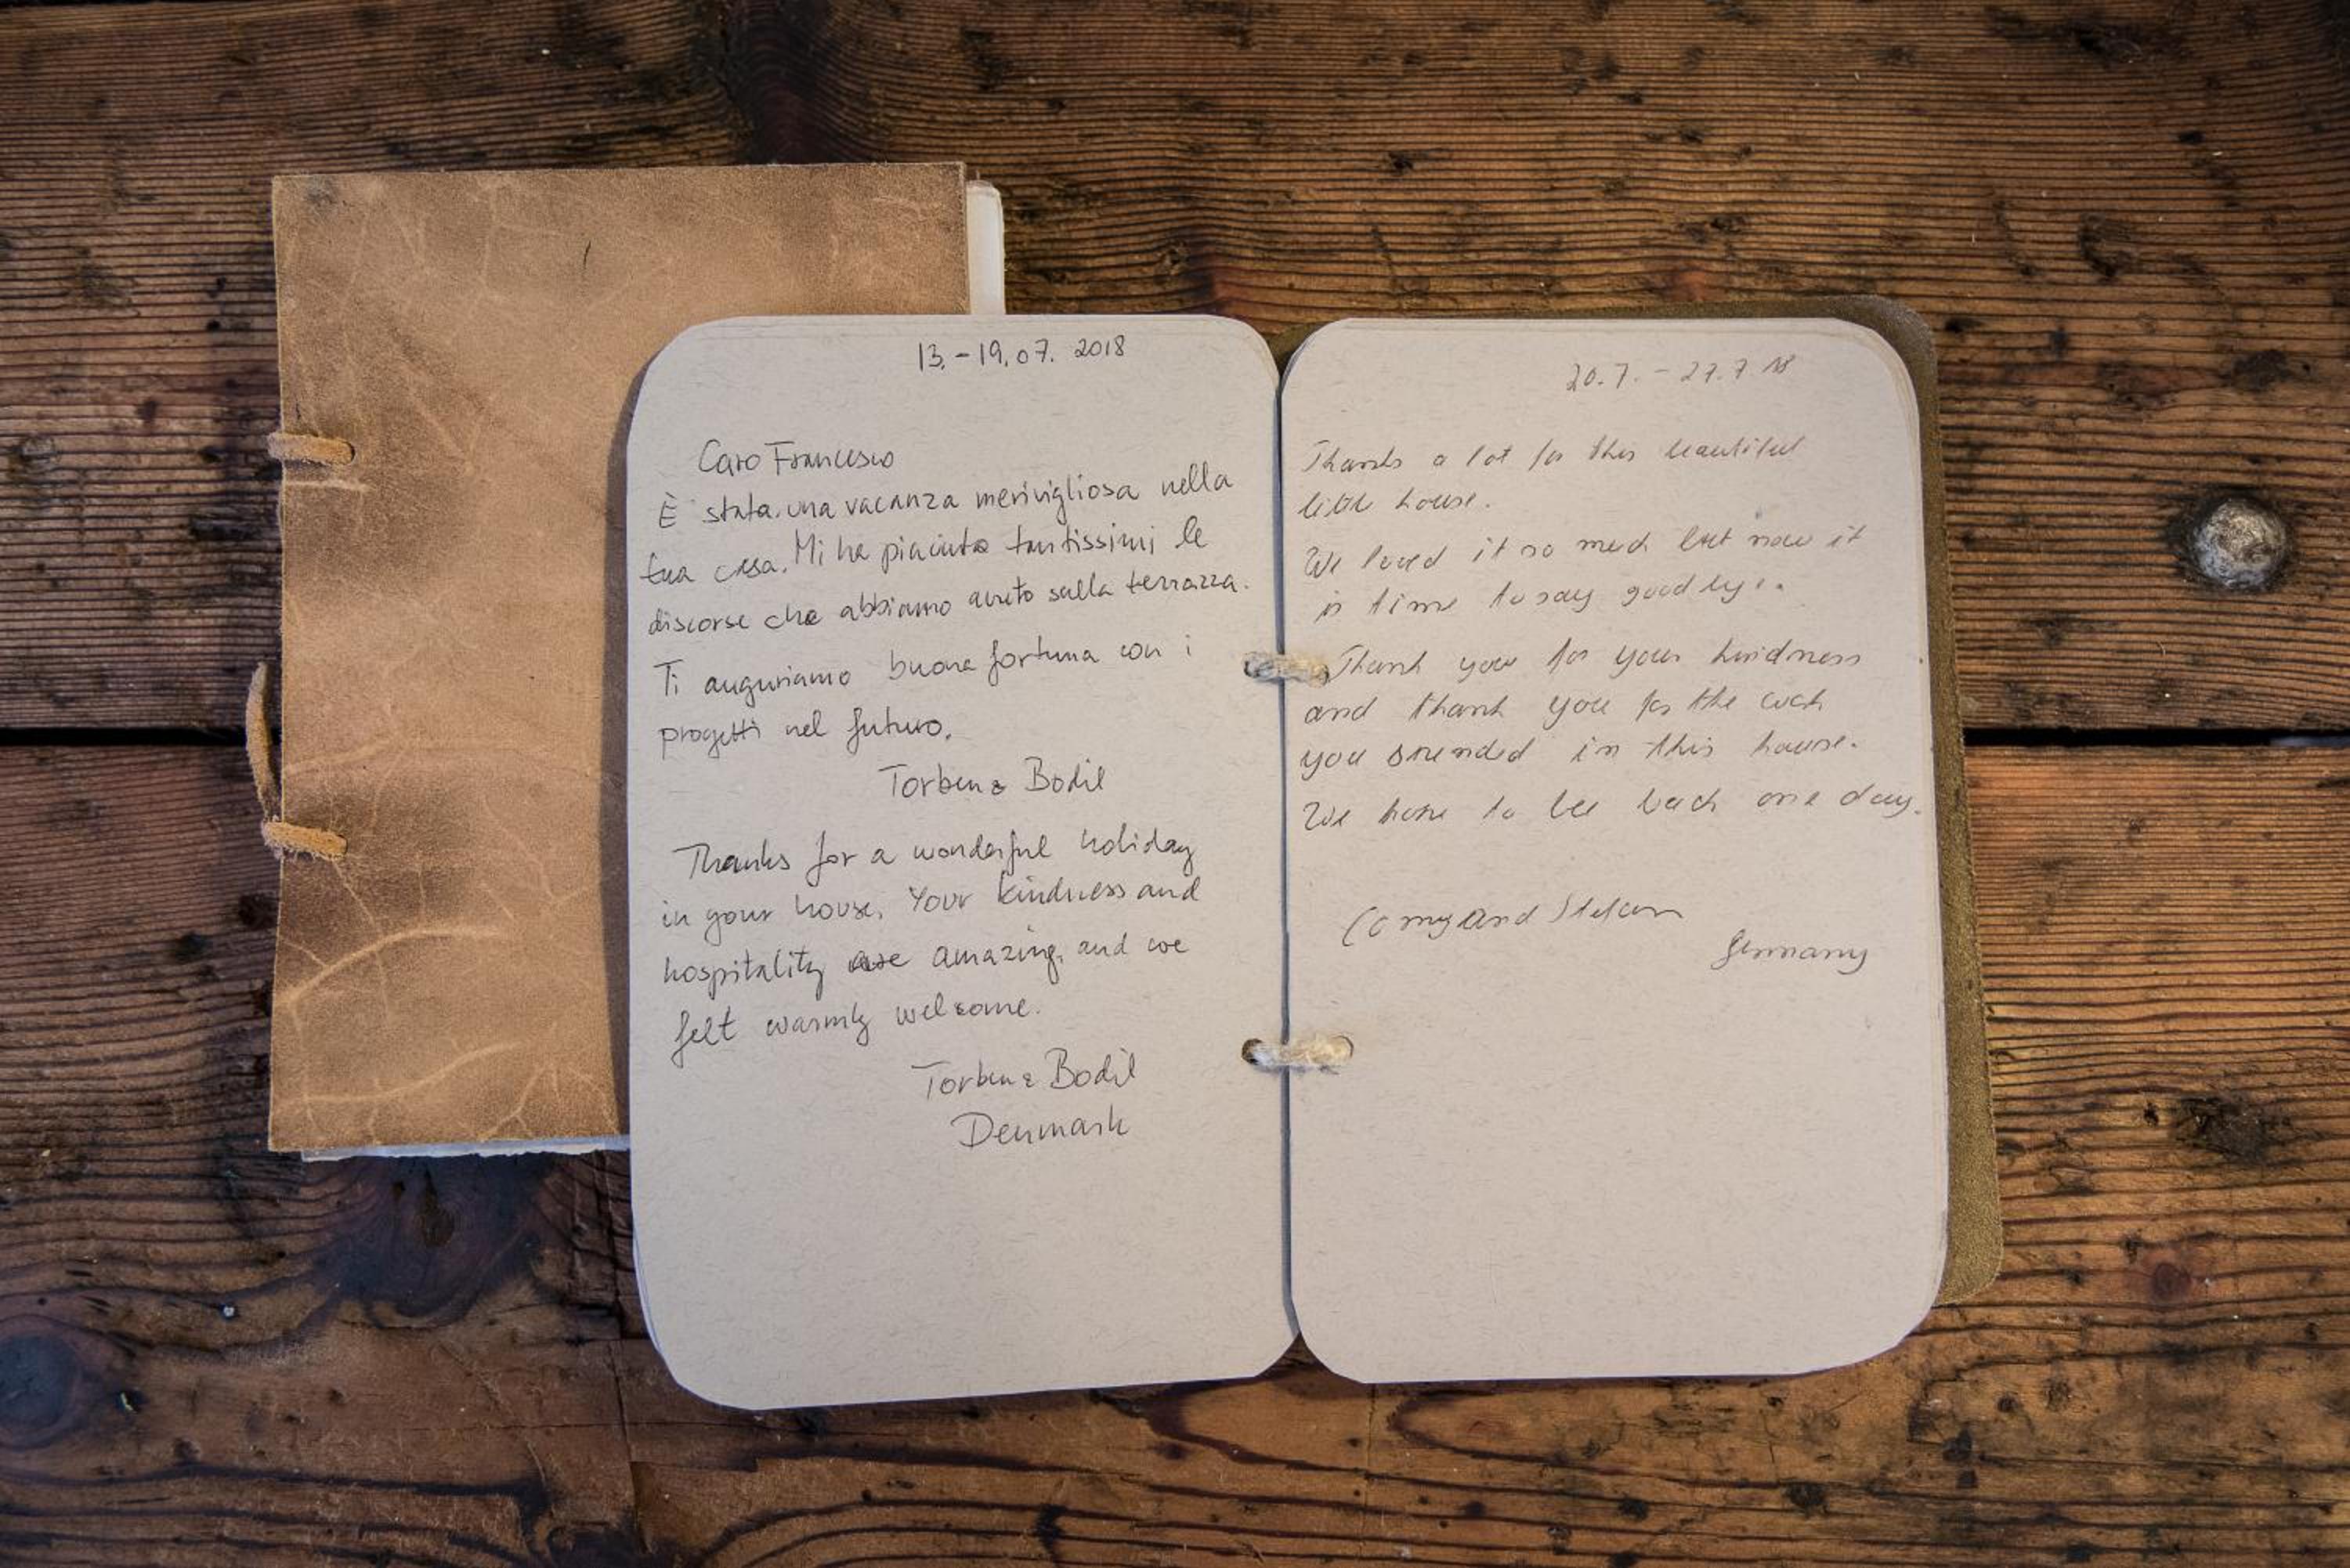 13.-19.07. 2018
Caro Francesco
È stata una vacanza merivigliosa nella
tua casa. Mi ha piaciuto tantissimi le
discorse che abbiamo avuto sulla terrazza.
Ti auguriamo buona fortuna con i
progetti nel futuro.
Torben & Bodil
Thanks for a wonderful holiday
in your house. Your kindness and
hospitality are amazing, and we
felt warmly welcome.
Torben & Bodil
Denmark
20.7. - 27.7.18
Thanks a lot for this beautiful
little house.
We loved it so much but now it
is time to say goodbye.
Thank you for your kindness
and thank you for the work
you in this house.
We hope to be back one day.
and Stefan
Germany